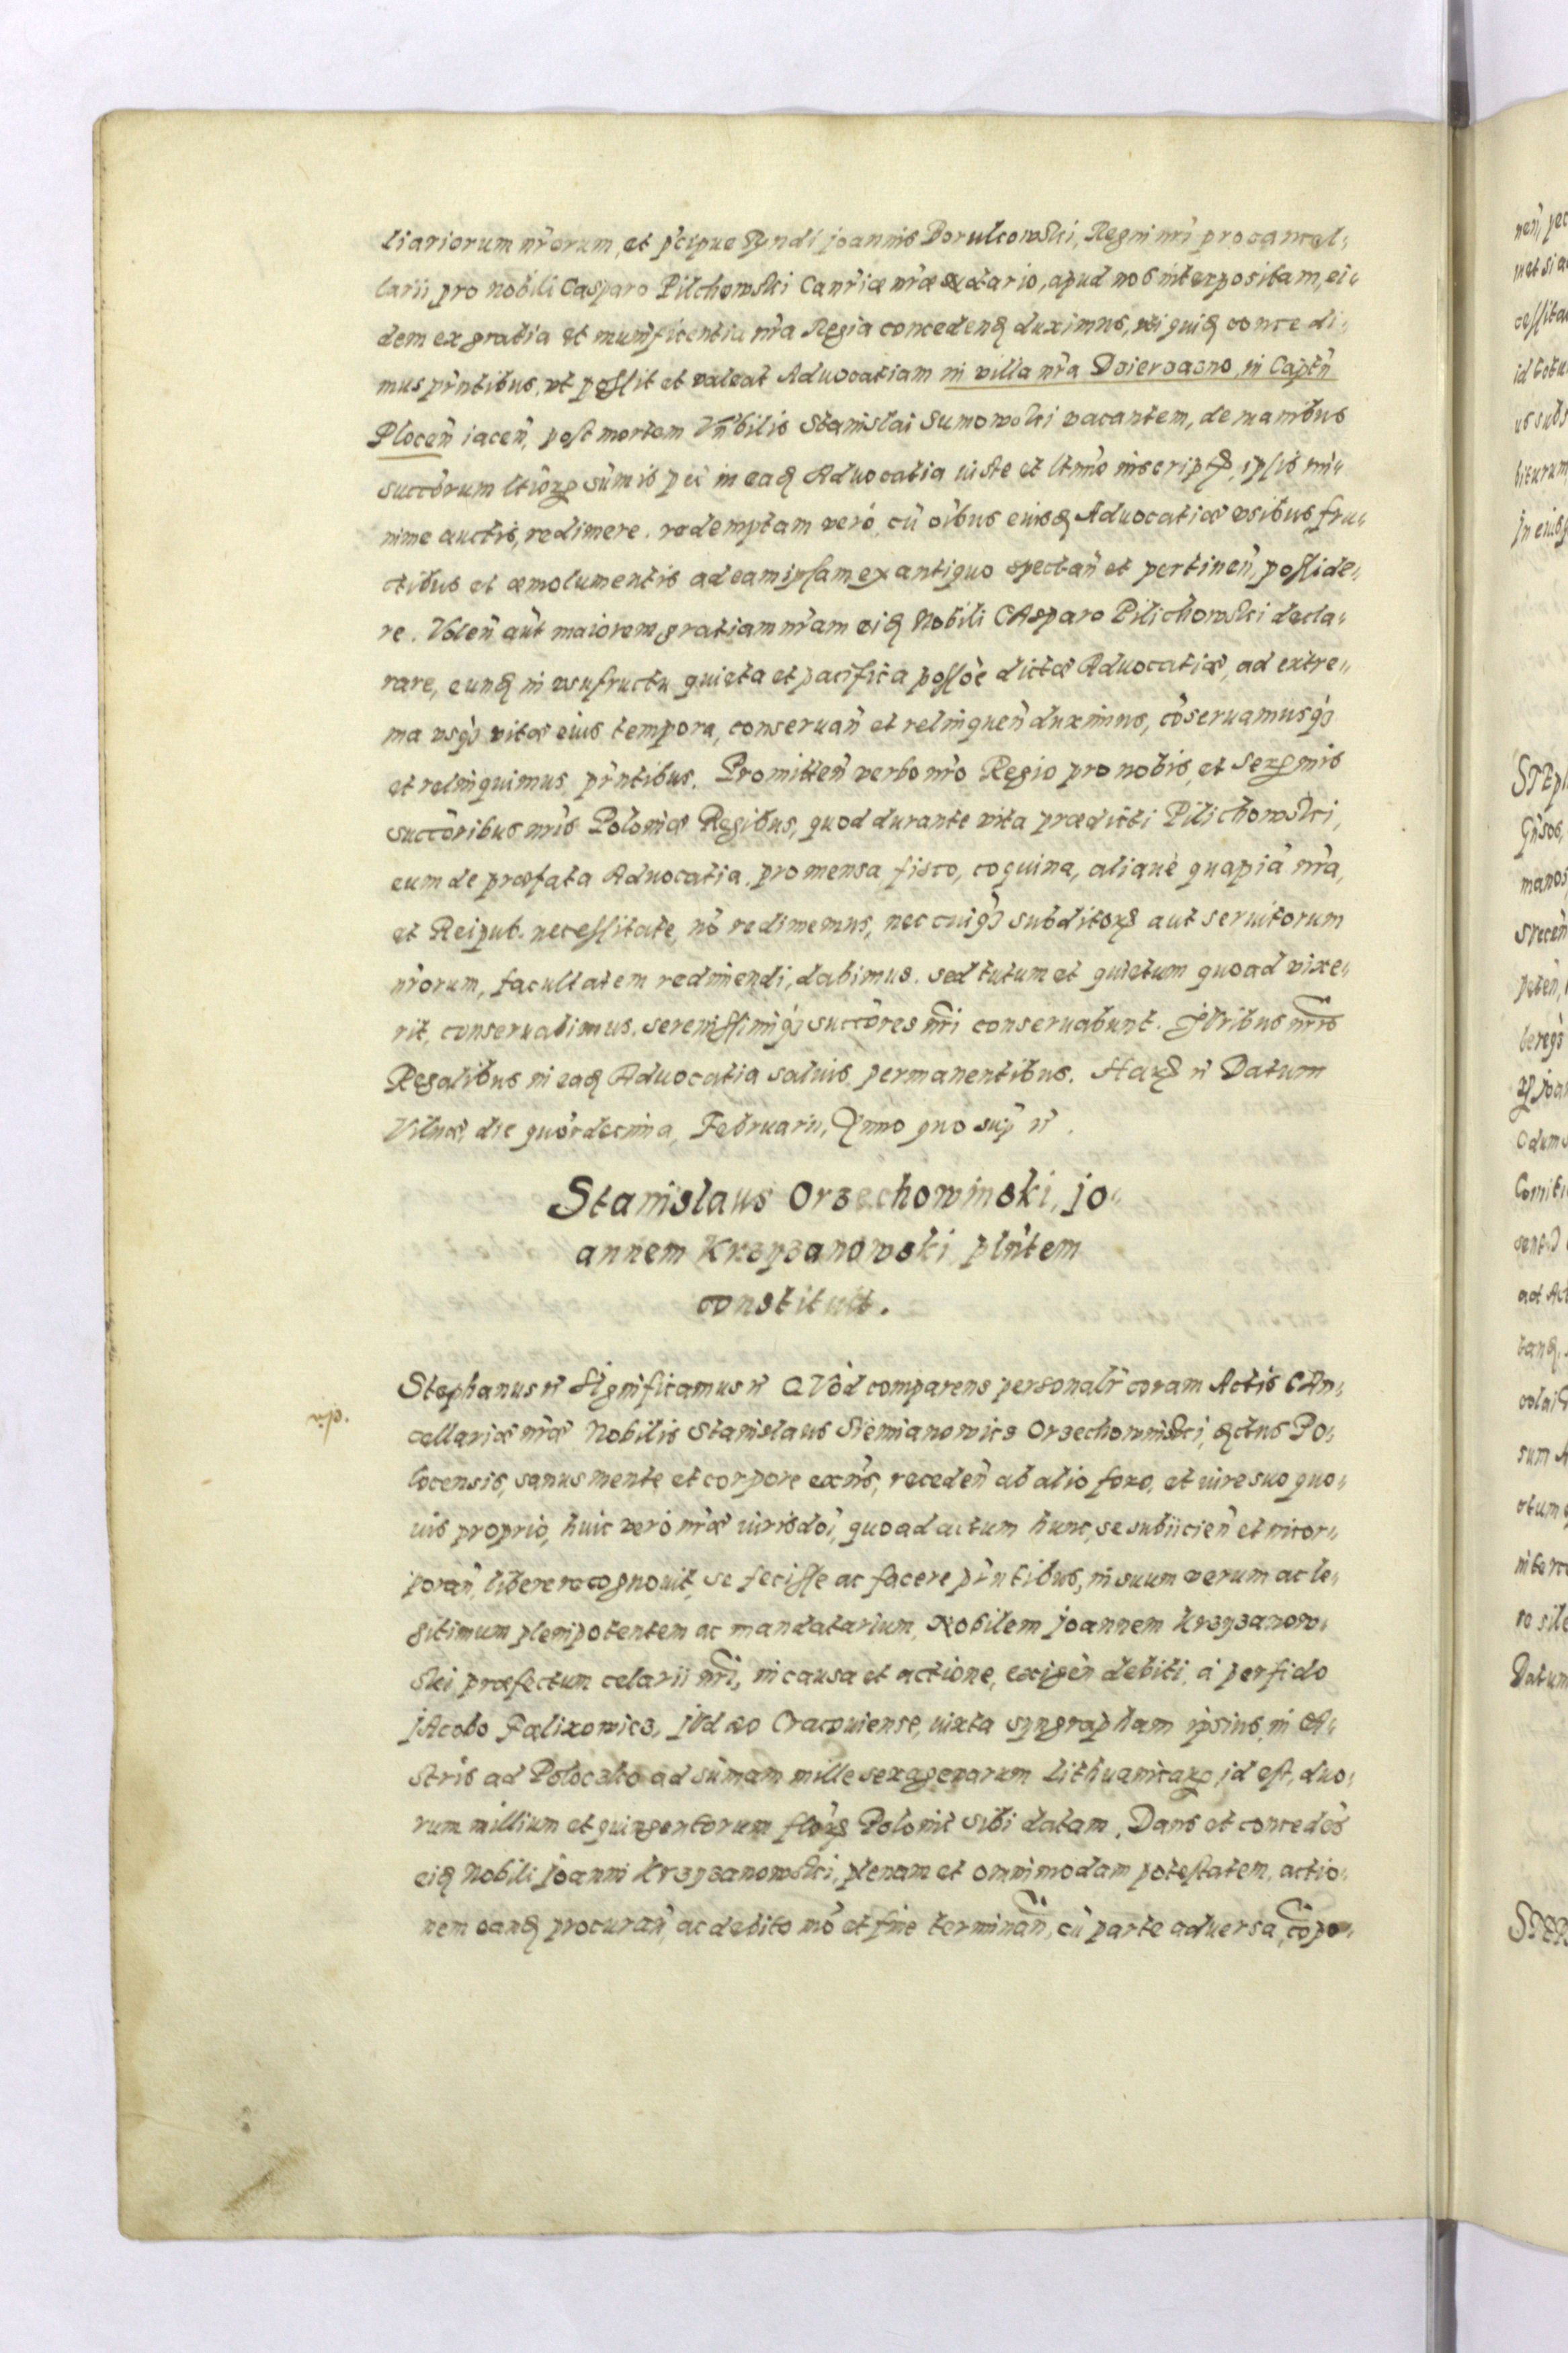 liariorum nr̃orum, et p̃cipue Syndi joannis Borukowski, Regni nr̃i procancel„
larii pro nobili Casparo Pilchowski Canr̃iæ nr̃æ actario, apud nos interpositam, ei„
dem ex gratia et munificentia nr̃a Regia concedenꝗ duximus, uti quiꝗ concedi„
mus pñtibus, ut possit et valeat Aduocatiam in villa nr̃a Dzierzazno, in Captñ
Plocen̄ iacen̄, post mortem Vñbilis Stanislai Sumowski vacantem, de manibus
succõrum ltiõꝝ sum̃is pec̃ in eaꝗ Aduocatia iuste et ltim̃e inscriptꝭ, ipsis mi„
nime auctis, redimere. redemptam verò, cũ oĩbus eiusꝗ Aduocatiæ vsibus fru„
ctibus et æmolumentis ad eam ipsam ex antiquo spectan̄ et pertinen̄, posside„
re. Volen̄ aũt maiorem gratiam nr̃am eiꝗ Nobili CAsparo Pilichowski decla„
rare, eunꝗ in vsufructu quieta et pacifica possõe dictæ Aduocatiæ, ad extre„
ma vsqꝫ vitæ eius tempora, conseruan̄ et relinquen̄ duximus, cõseruamusqꝫ
et relinquimus pñtibus. Promitten̄ verbo nr̃o Regio pro nobis, et Serꝫmis
succõribus nr̃is Poloniæ Regibus, quod durante vita prædicti Pilichowski,
eum de præfata Aduocatia, pro mensa, fisco, coquina, aliauè quapiã nr̃a,
et Reipub. necessitate, nõ redimemus, nec cuiqꝫ subditoꝝ aut seruitorum
nr̃orum, facultatem redimendi, dabimus. sed tutum et quietum quoad vixe„
rit, conseruabimus. serenissimiqꝫ succõres nr̃i conseruabunt. Jũribus nr̃is
Regalibus in eaꝗ Aduocatia saluis permanentibus. Haꝝ rc̃ Datum
Vilnæ, die quõrdecima, Februarii, Anno quo sup̃ rc̃.
Stanislaus Orzechowinski, jo„
annem Krzyzanowski plñtem
constituit.
Stephanus rc̃ Significamus rc̃ QVõd comparens personalr̃ coram Actis CAn„
cellariæ nr̃æ Nobilis Stanislaus Siemianowicz Orzechowinski, Po„
locensis, sanus mente et corpore exñs, receden̄ ab alio foro, et iure suo quo„
uis proprio, huic verò nr̃æ iurisdõi, quo ad actum hunc, se subiicien̄ et incor„
poran̄, liberè recognouit, se fecisse ac facere pñtibus, in suum verum ac le„
gitimum plenipotentem ac mandatarium, Nobilem joannem Krzyzanow„
ski præfectum celarii nr̃i, in causa et actione, exigen̄ debiti, à perfido
jAcobo Fælixowicz, jVdæo Cracouiense, iuxta syngrapham ipsius, in CA„
stris ad Poloczko ad sum̃am mille sexagenarum Lithuanicaꝝ, id est, duo„
rum millium et quingentorum flõꝝ Polonic̃ sibi datam. Dans et concedẽs
eiꝗ Nobili joanni Krzyzanowski, plenam et omnimodam potestatem, actio„
nem eanꝗ procuran̄, ac debito mõ et fine terminan̄, cũ parte aduersa, cõpo„